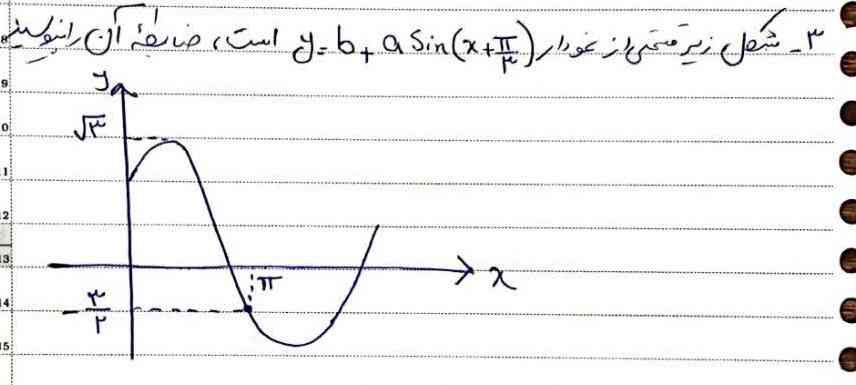 ۳- شکل زیر قسمتی از نمودار y = b + a Sin(x + π/۳) است، ضابطهٔ آن را بنویسید
y
√۳
π
x
-۳/۲
9
0
1
2
3
4
5